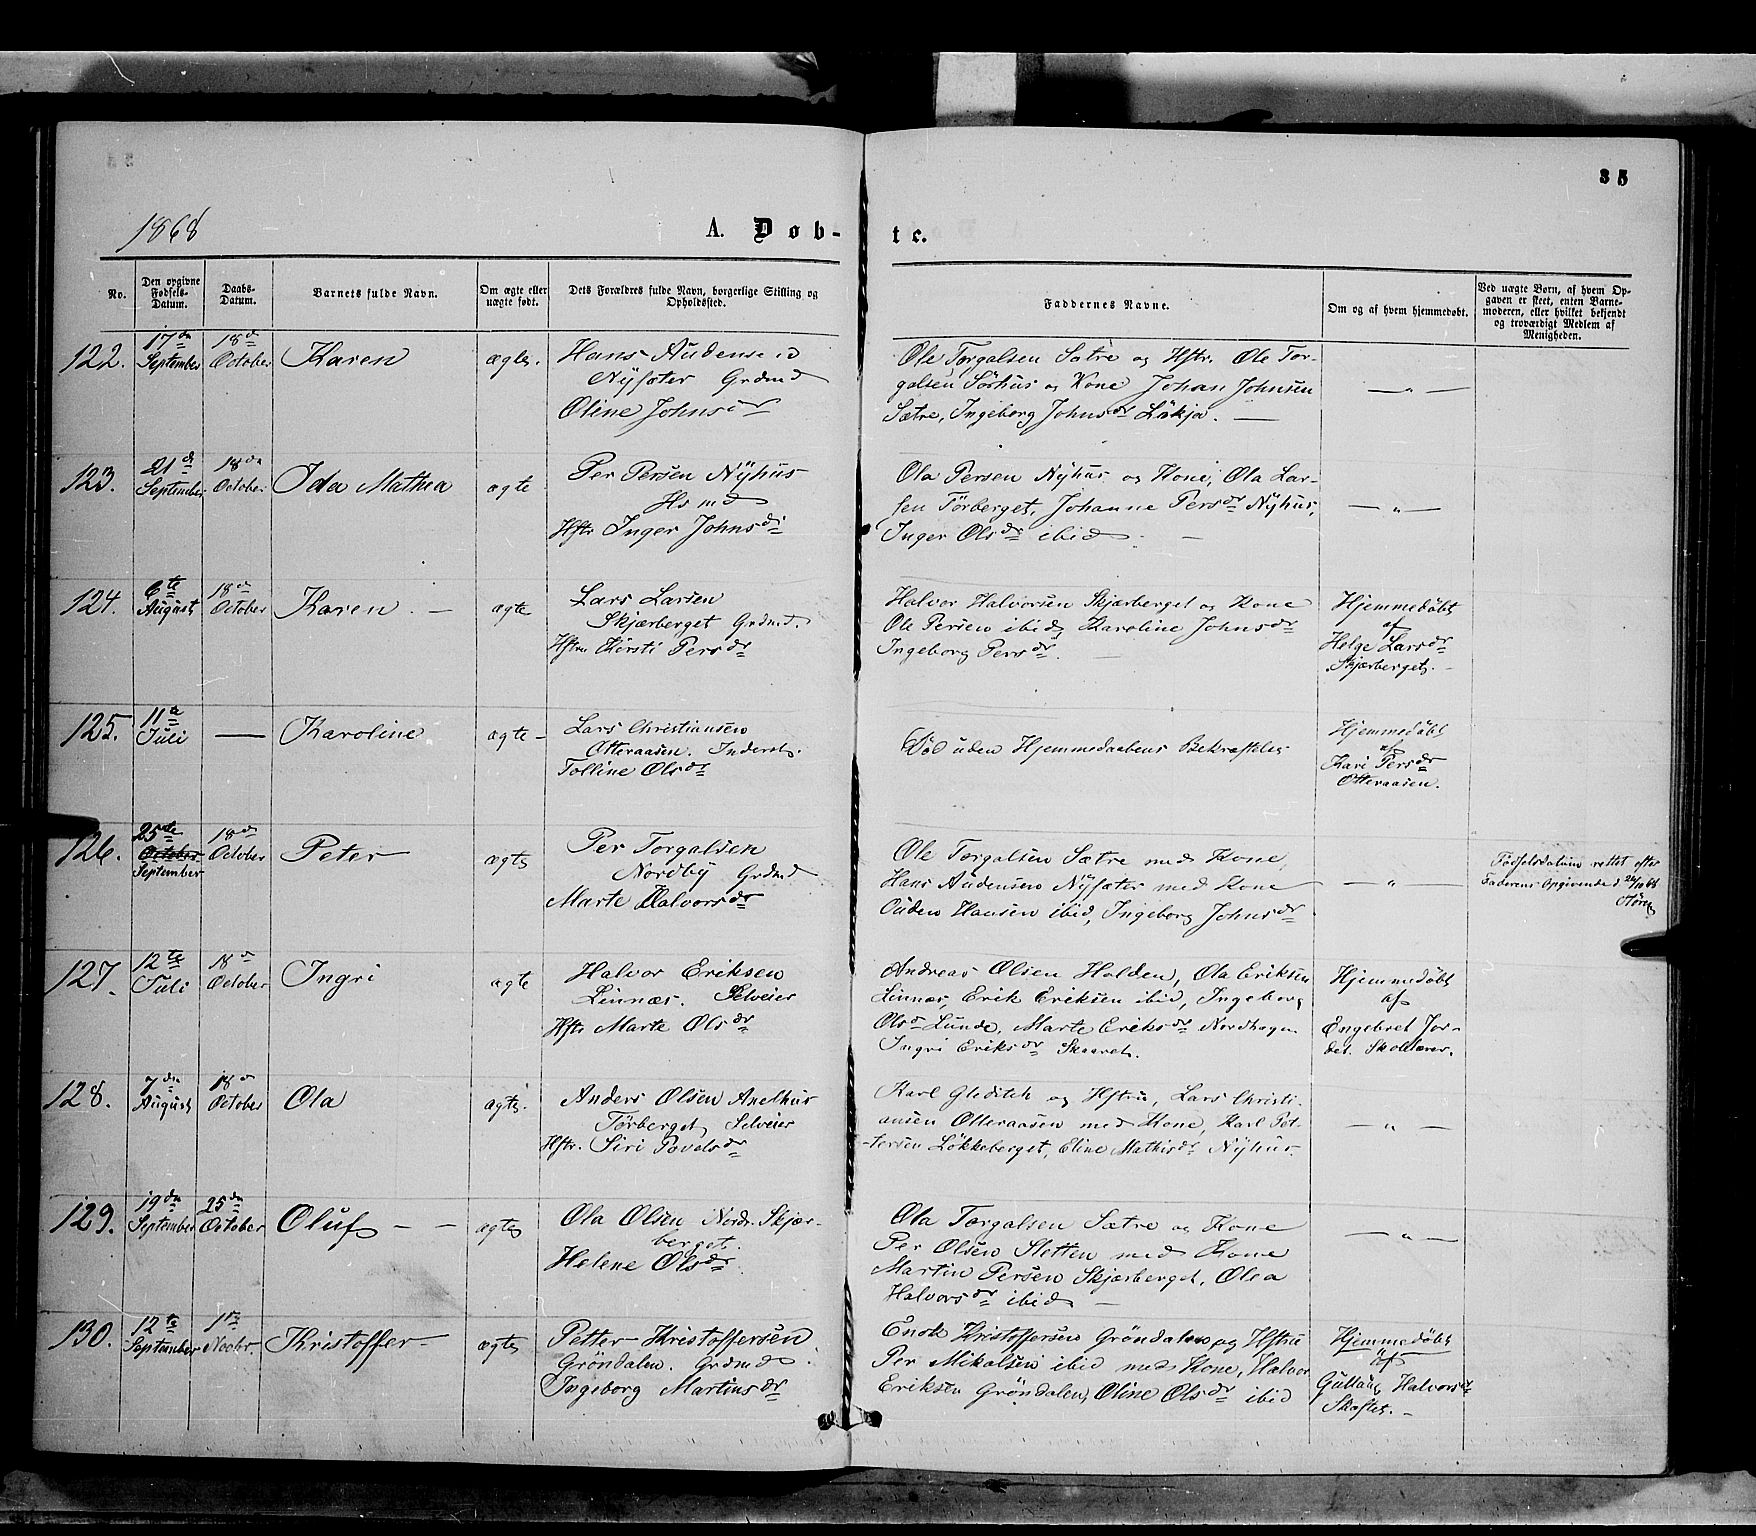 35
1868
A. Døb-
te.
No.
Den opgivne Fødsels-Datum.
Daabs-Datum.
Barnets fulde Navn.
Om ægte eller uægte født.
Dets Forældres fulde Navn, borgerlige Stilling og Opholdssted.
Faddernes Navne.
Om og af hvem hjemmedøbt.
Ved uægte Børn, af hvem Opgaven er skeet, enten Barnemoderen, eller hvilket bekjendt og troværdigt Medlem af Menigheden.
122.
17de September
18de October
Karen
ægte.
Hans Audensen
Nysæter Grdmd
Oline Johnsdr
Ole Torgalsen Sætre og Hstr. Ole Tor-
galsen Sörhus og Kone Johan Johnsen
Sætre, Ingeborg Johnsdr Läkja. —
— " —
123.
21de September
18de October
Ida Mathea
ægte
Per Persen Nyhus
Hsmd
Hstr Inger Johnsdr
Ola Persen Nyhus og Kone, Ola Lar-
sen Törberget, Johanne Persdr Nyhus,
Inger Olsdr ibid. —
— " —
124.
6te August
18de October
Karen. —
ægte
Lars Larsen
Skjærberget Grdmd.
Hstru Kirsti Persdr
Halvor Halvorsen Skjærberget og Kone
Ole Persen ibid, Karoline Johnsdr
Ingeborg Persdr. —
Hjemmedöbt
af
Helge Larsdr
Skjærberget. -
125.
11te Juli
—
Karoline
ægte -
Lars Christiansen
Otteraasen. Inderst.
Tolline Olsdr
Död uden Hjemmedaabens Bekræftelse
Hjemmedöbt
af
Kari Persdr
Otteraasen.
126.
25de October September
18de October
Peter
ægte
Per Torgalsen
Nordby Grdmd
Marte Halvorsdr
Ole Torgalsen Sætre med Kone,
Hans Audensen Nysæter med Kone
Ouden Hansen ibid, Ingeborg Johnsdr
— " —
Födselsdatum rettet efter
Faderens Opgivende d
127.
12te Juli
18de October
Ingri
ægte
Halvor Eriksen
Linnæs. Selveier
Hstr Marte Olsdr
Andreas Olsen Holden, Ola Eriksen
Linnæs, Erik Eriksen ibid, Ingeborg
Olsd Lunde, Marte Eriksdr Nordhagen
Ingri Eriksdr Skaaret.
Hjemmedöbt
af
Engebret Jor-
det. Skolelærer.
128.
7de August
18de October
Ola
ægte.
Anders Olsen Anelhus
Törberget, Selveier
Hstr. Siri Povelsdr
Karl Gleditch og Hstru, Lars Christi-
ansen Otteraasen med Kone, Karl Pet-
tersen Lökkeberget, Eline Mathisdr Nyhus.
— " —
129.
19de September
25de October
Oluf — —
ægte
Ola Olsen Nordr. Skjær-
berget.
Helene Olsdr.
Ola Torgalsen Sætre og Kone
Per Olsen Sletten med Kone
Martin Persen Skjærberget, Olea
Halvorsdr ibid —
— " —
130.
12te September
1ste Novbr.
Kristoffer —
ægte
Petter Kristoffersen
Gröndalen. Grdmd.
Ingeborg Martinsdr
Enok Kristoffersen Gröndalen og Hstru
Per Mikalsen ibid med Kone, Halvor
Eriksen Gröndalen, Oline Olsdr ibid
Hjemmedöbt
af
Gullaug Halvorsdr
Skæftet. -